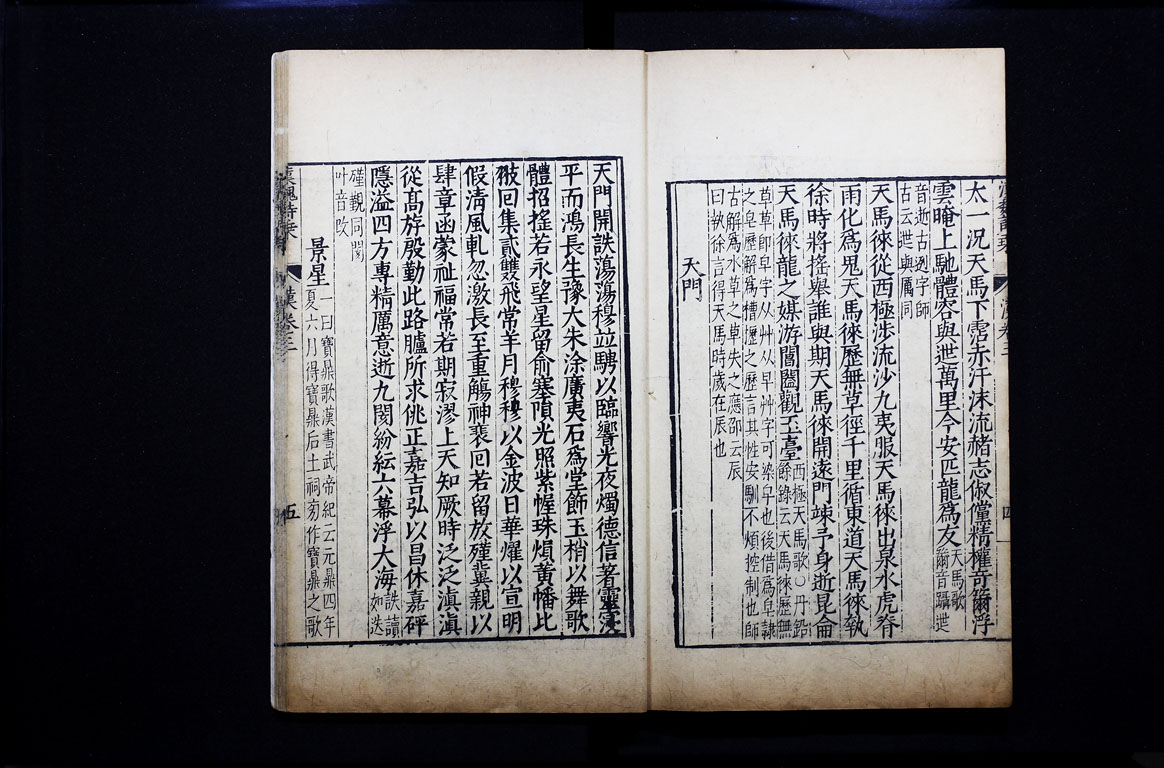 太一況天馬下霑赤汗沫流赭志俶儻精權奇籋浮
雲晻上馳體容與迣萬里今安匹龍為友天馬歌籋音躡迣
音逝古迾字師
古云迣與厲同
天馬徠從西極涉流沙九夷服天馬徠出泉水虎脊
兩化為鬼天馬徠歷無草徑千里循東道天馬徠執
徐時將搖舉誰與期天馬徠開遠門竦予身逝昆侖
天馬徠龍之媒游閶闔觀玉臺西極天馬歌○丹鉛餘錄云天馬徠歷無
草草即皁字从艸从早艸字可染皁也後借為皁隸
之皁歷解為槽櫪之櫪言其性安馴不煩控制也師
古解為水草之草失之應邵云辰
曰執徐言得天馬時歲在辰也
天門
天門開詄蕩蕩穆竝騁以臨饗光夜燭德信著靈寖
平而鴻長生豫大朱涂廣夷石為堂飾玉梢以舞歌
體招搖若永望星留俞塞隕光照紫幄珠熉黃幡比
㧊回集貳雙飛常羊月穆穆以金波日華燿以宣明
假清風軋忽激長至重觴神裴回若留放殣冀親以
肆章函蒙祉福常若期寂漻上天知厥時泛泛滇滇
從高斿殷勤此路臚所求佻正嘉吉弘以昌休嘉砰
隱溢四方專精厲意逝九閡紛紜六幕浮大海詄讀如迭
殣觀同閡
叶音改
景星一曰寶鼎歌漢書武帝紀云元鼎四年
夏六月得寶鼎后土祠旁作寶鼎之歌
漢 卷三
五